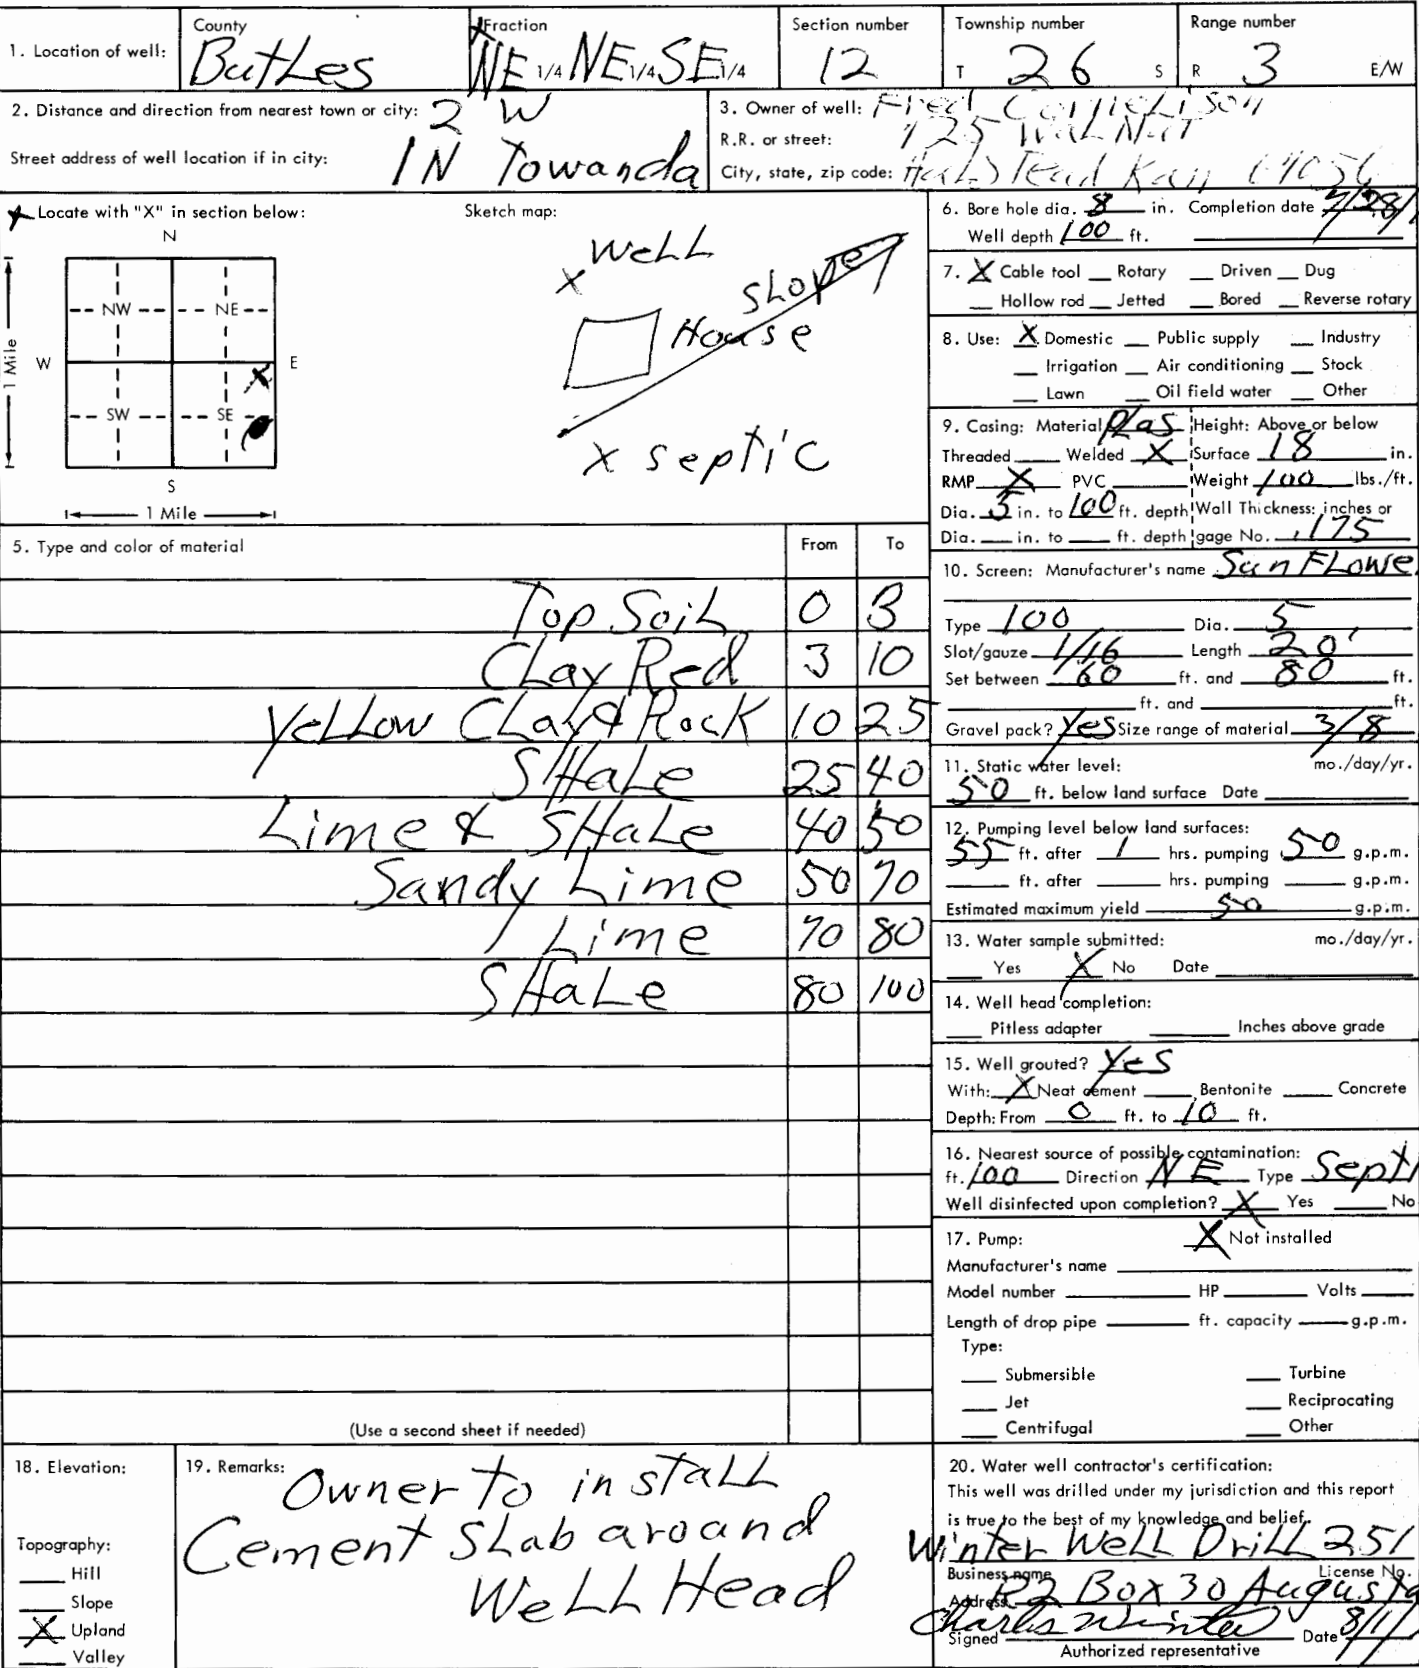 1. Location of well: County Butles Fraction NE 1/4 NE 1/4 SE 1/4 Section number 12 Township number T 26 S Range number R 3 E/W
2. Distance and direction from nearest town or city: 2 W
Street address of well location if in city: IN Towanda
3. Owner of well: Fred Cornelison
R.R. or street: 725 WaLNut
City, state, zip code: HaLStead Kan
Locate with "X" in section below:
N
NW NE
W E
SW SE
S
1 Mile
1 Mile
Sketch map:
x WeLL
SLope
House
x septic
5. Type and color of material From To
Top SoiL 0 3
CLay Red 3 10
YeLLow CLay & Rock 10 25
SHaLe 25 40
Lime & SHaLe 40 50
Sandy Lime 50 70
Lime 70 80
SHaLe 80 100
(Use a second sheet if needed)
6. Bore hole dia. 8 in. Completion date 7/28/
Well depth 100 ft.
7. X Cable tool Rotary Driven Dug
Hollow rod Jetted Bored Reverse rotary
8. Use: X Domestic Public supply Industry
Irrigation Air conditioning Stock
Lawn Oil field water Other
9. Casing: Material PLas Height: Above or below
Threaded Welded X Surface 18 in.
RMP X PVC Weight 100 lbs./ft.
Dia. 5 in. to 100 ft. depth Wall Thickness: inches or
Dia. in. to ft. depth gage No. .175
10. Screen: Manufacturer's name SunFLowe
Type 100 Dia. 5
Slot/gauze 1/16 Length 20'
Set between 60 ft. and 80 ft.
ft. and ft.
Gravel pack? Yes Size range of material 3/8
11. Static water level: mo./day/yr.
50 ft. below land surface Date
12. Pumping level below land surfaces:
55 ft. after 1 hrs. pumping 50 g.p.m.
ft. after hrs. pumping g.p.m.
Estimated maximum yield 50 g.p.m.
13. Water sample submitted: mo./day/yr.
Yes X No Date
14. Well head completion:
Pitless adapter Inches above grade
15. Well grouted? Yes
With: X Neat cement Bentonite Concrete
Depth: From 0 ft. to 10 ft.
16. Nearest source of possible contamination:
ft. 100 Direction NE Type Septi
Well disinfected upon completion? X Yes No
17. Pump: X Not installed
Manufacturer's name
Model number HP Volts
Length of drop pipe ft. capacity g.p.m.
Type:
Submersible Turbine
Jet Reciprocating
Centrifugal Other
18. Elevation:
Topography:
Hill
Slope
X Upland
Valley
19. Remarks: Owner to instaLL
Cement SLab around
WeLL Head
20. Water well contractor's certification:
This well was drilled under my jurisdiction and this report
is true to the best of my knowledge and belief.
Winter WeLL DriLL 251
Business name License No.
Address R2 Box 30 Augusta
Signed Charles Winter Date 8/1/
Authorized representative